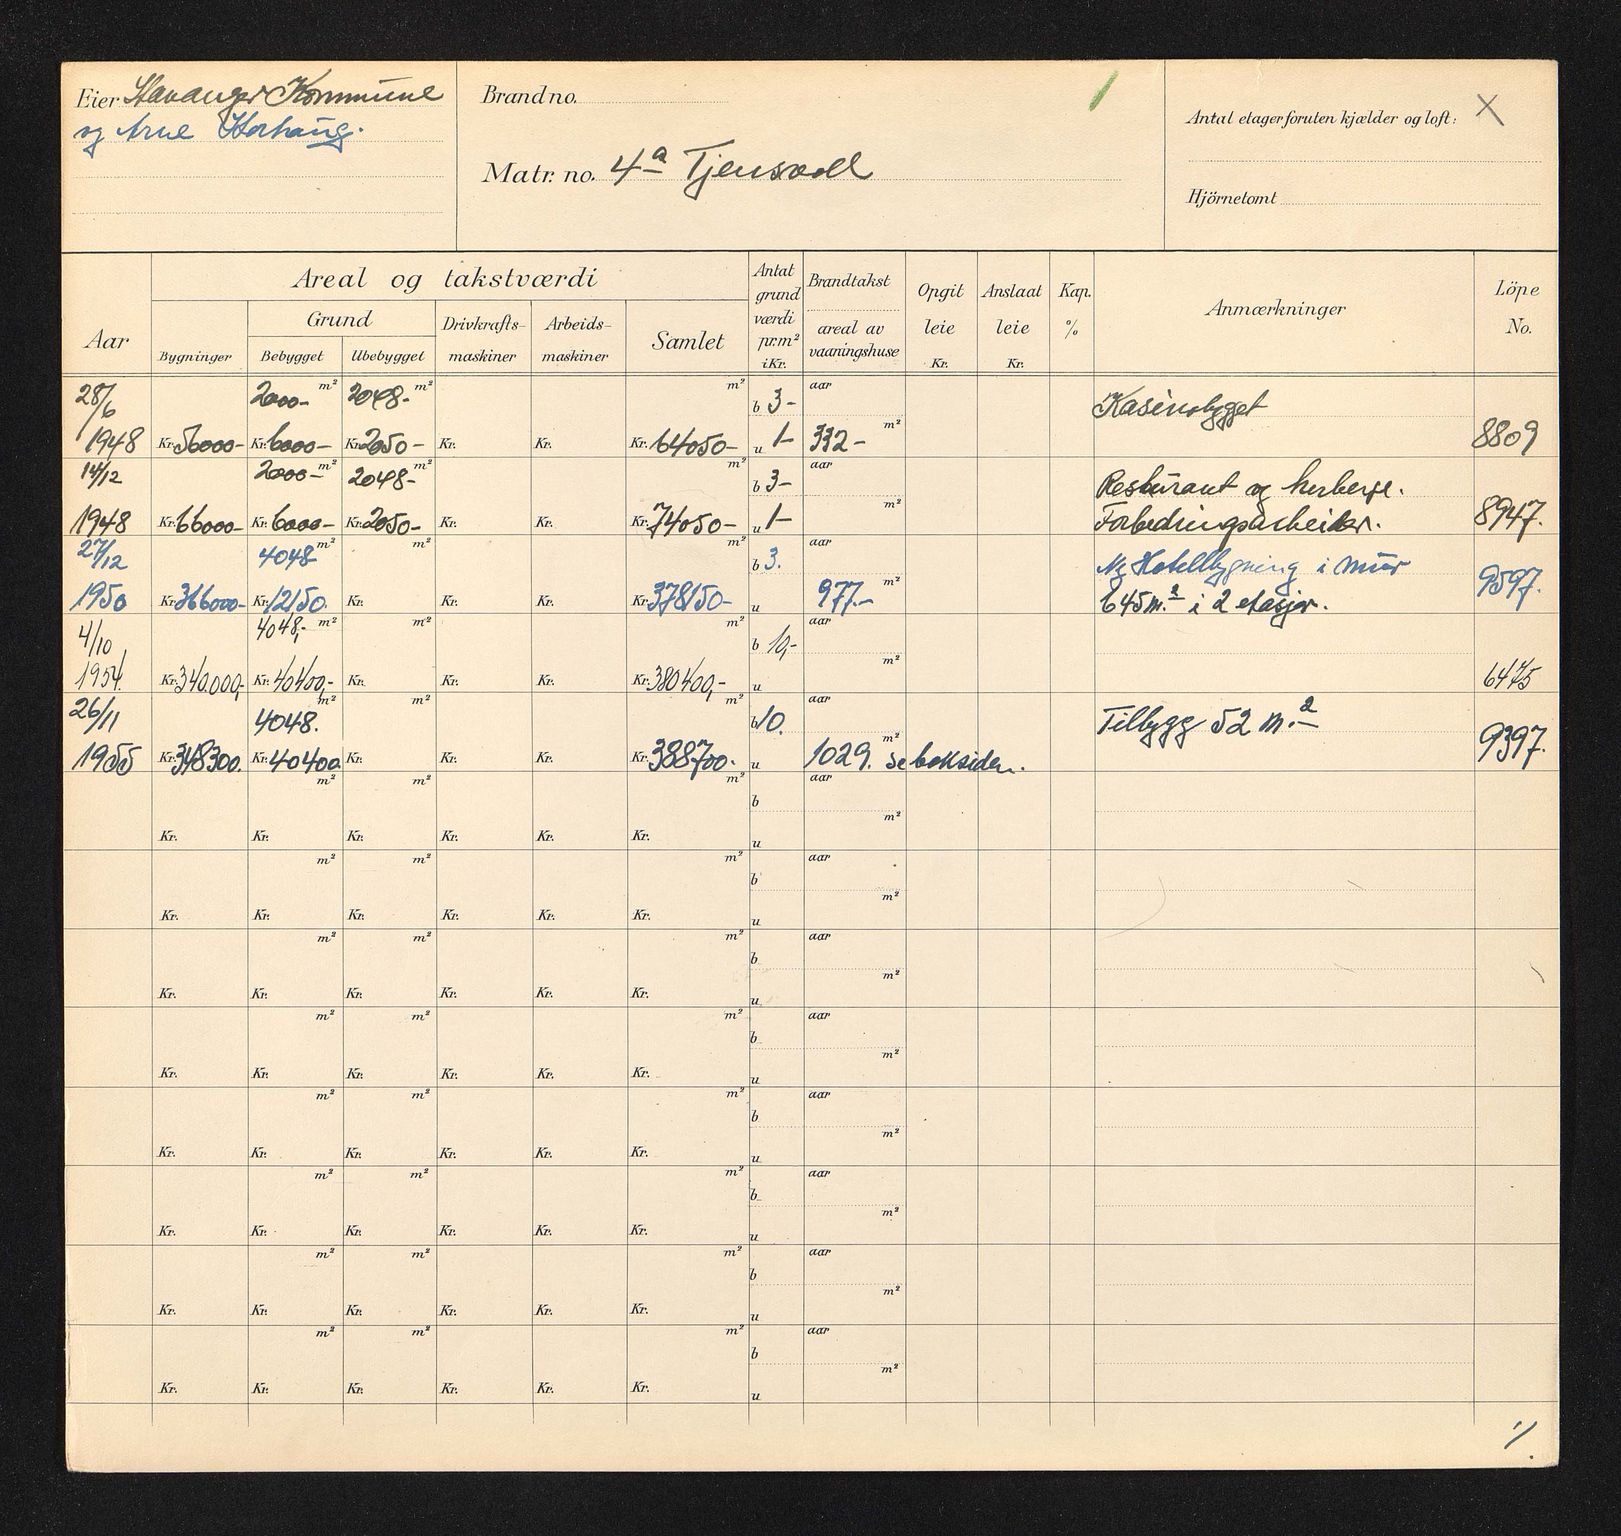 Eier Stavanger Kommune
og Arne
Brand no.
Matr. no. 4a Tjensvoll
Antal etager foruten kjælder og loft: X
Hjörnetomt
Aar
Areal og takstværdi
Bygninger
Grund
Bebygget
Ubebygget
Drivkrafts-maskiner
Arbeids-maskiner
Samlet
Antat grund værdi pr. m² i Kr.
Brandtakst
areal av vaaningshuse
Opgit leie Kr.
Anslaat leie Kr.
Kap. %
Anmærkninger
Löpe No.
28/6 2000- m² 2048- m² m² b 3- aar Kasinobygget
1948 Kr. 56000- Kr. 6000- Kr. 2050- Kr. Kr. Kr. 64050- u 1- 332- m² 8809
14/12 2000- m² 2048- m² m² b 3- aar Resturant og herberge.
1948 Kr. 66000- Kr. 6000- Kr. 2050- Kr. Kr. Kr. 74050- u 1- m² Forbedringsarbeider. 8947.
27/12 4048 m² m² m² b 3. aar Ny Hotellbygning i mur
1950 Kr. 366000- Kr. 12150. Kr. Kr. Kr. Kr. 378150- u 977.- m² 645 m.² i 2 etasjer. 9597.
4/10 4048,- m² m² m² b 10,- aar
1954. Kr. 340.000,- Kr. 40400,- Kr. Kr. Kr. Kr. 380400,- u m² 6475
26/11 4048. m² m² m² b 10. aar Tilbygg 52 m.²
1955 Kr. 348300. Kr. 40400. Kr. Kr. Kr. Kr. 388700. u 1029. m² se baksiden. 9397.
m² m² m² b aar
Kr. Kr. Kr. Kr. Kr. Kr. u m²
m² m² m² b aar
Kr. Kr. Kr. Kr. Kr. Kr. u m²
m² m² m² b aar
Kr. Kr. Kr. Kr. Kr. Kr. u m²
m² m² m² b aar
Kr. Kr. Kr. Kr. Kr. Kr. u m²
m² m² m² b aar
Kr. Kr. Kr. Kr. Kr. Kr. u m²
m² m² m² b aar
Kr. Kr. Kr. Kr. Kr. Kr. u m²
m² m² m² b aar
Kr. Kr. Kr. Kr. Kr. Kr. u m²
m² m² m² b aar
Kr. Kr. Kr. Kr. Kr. Kr. u m²